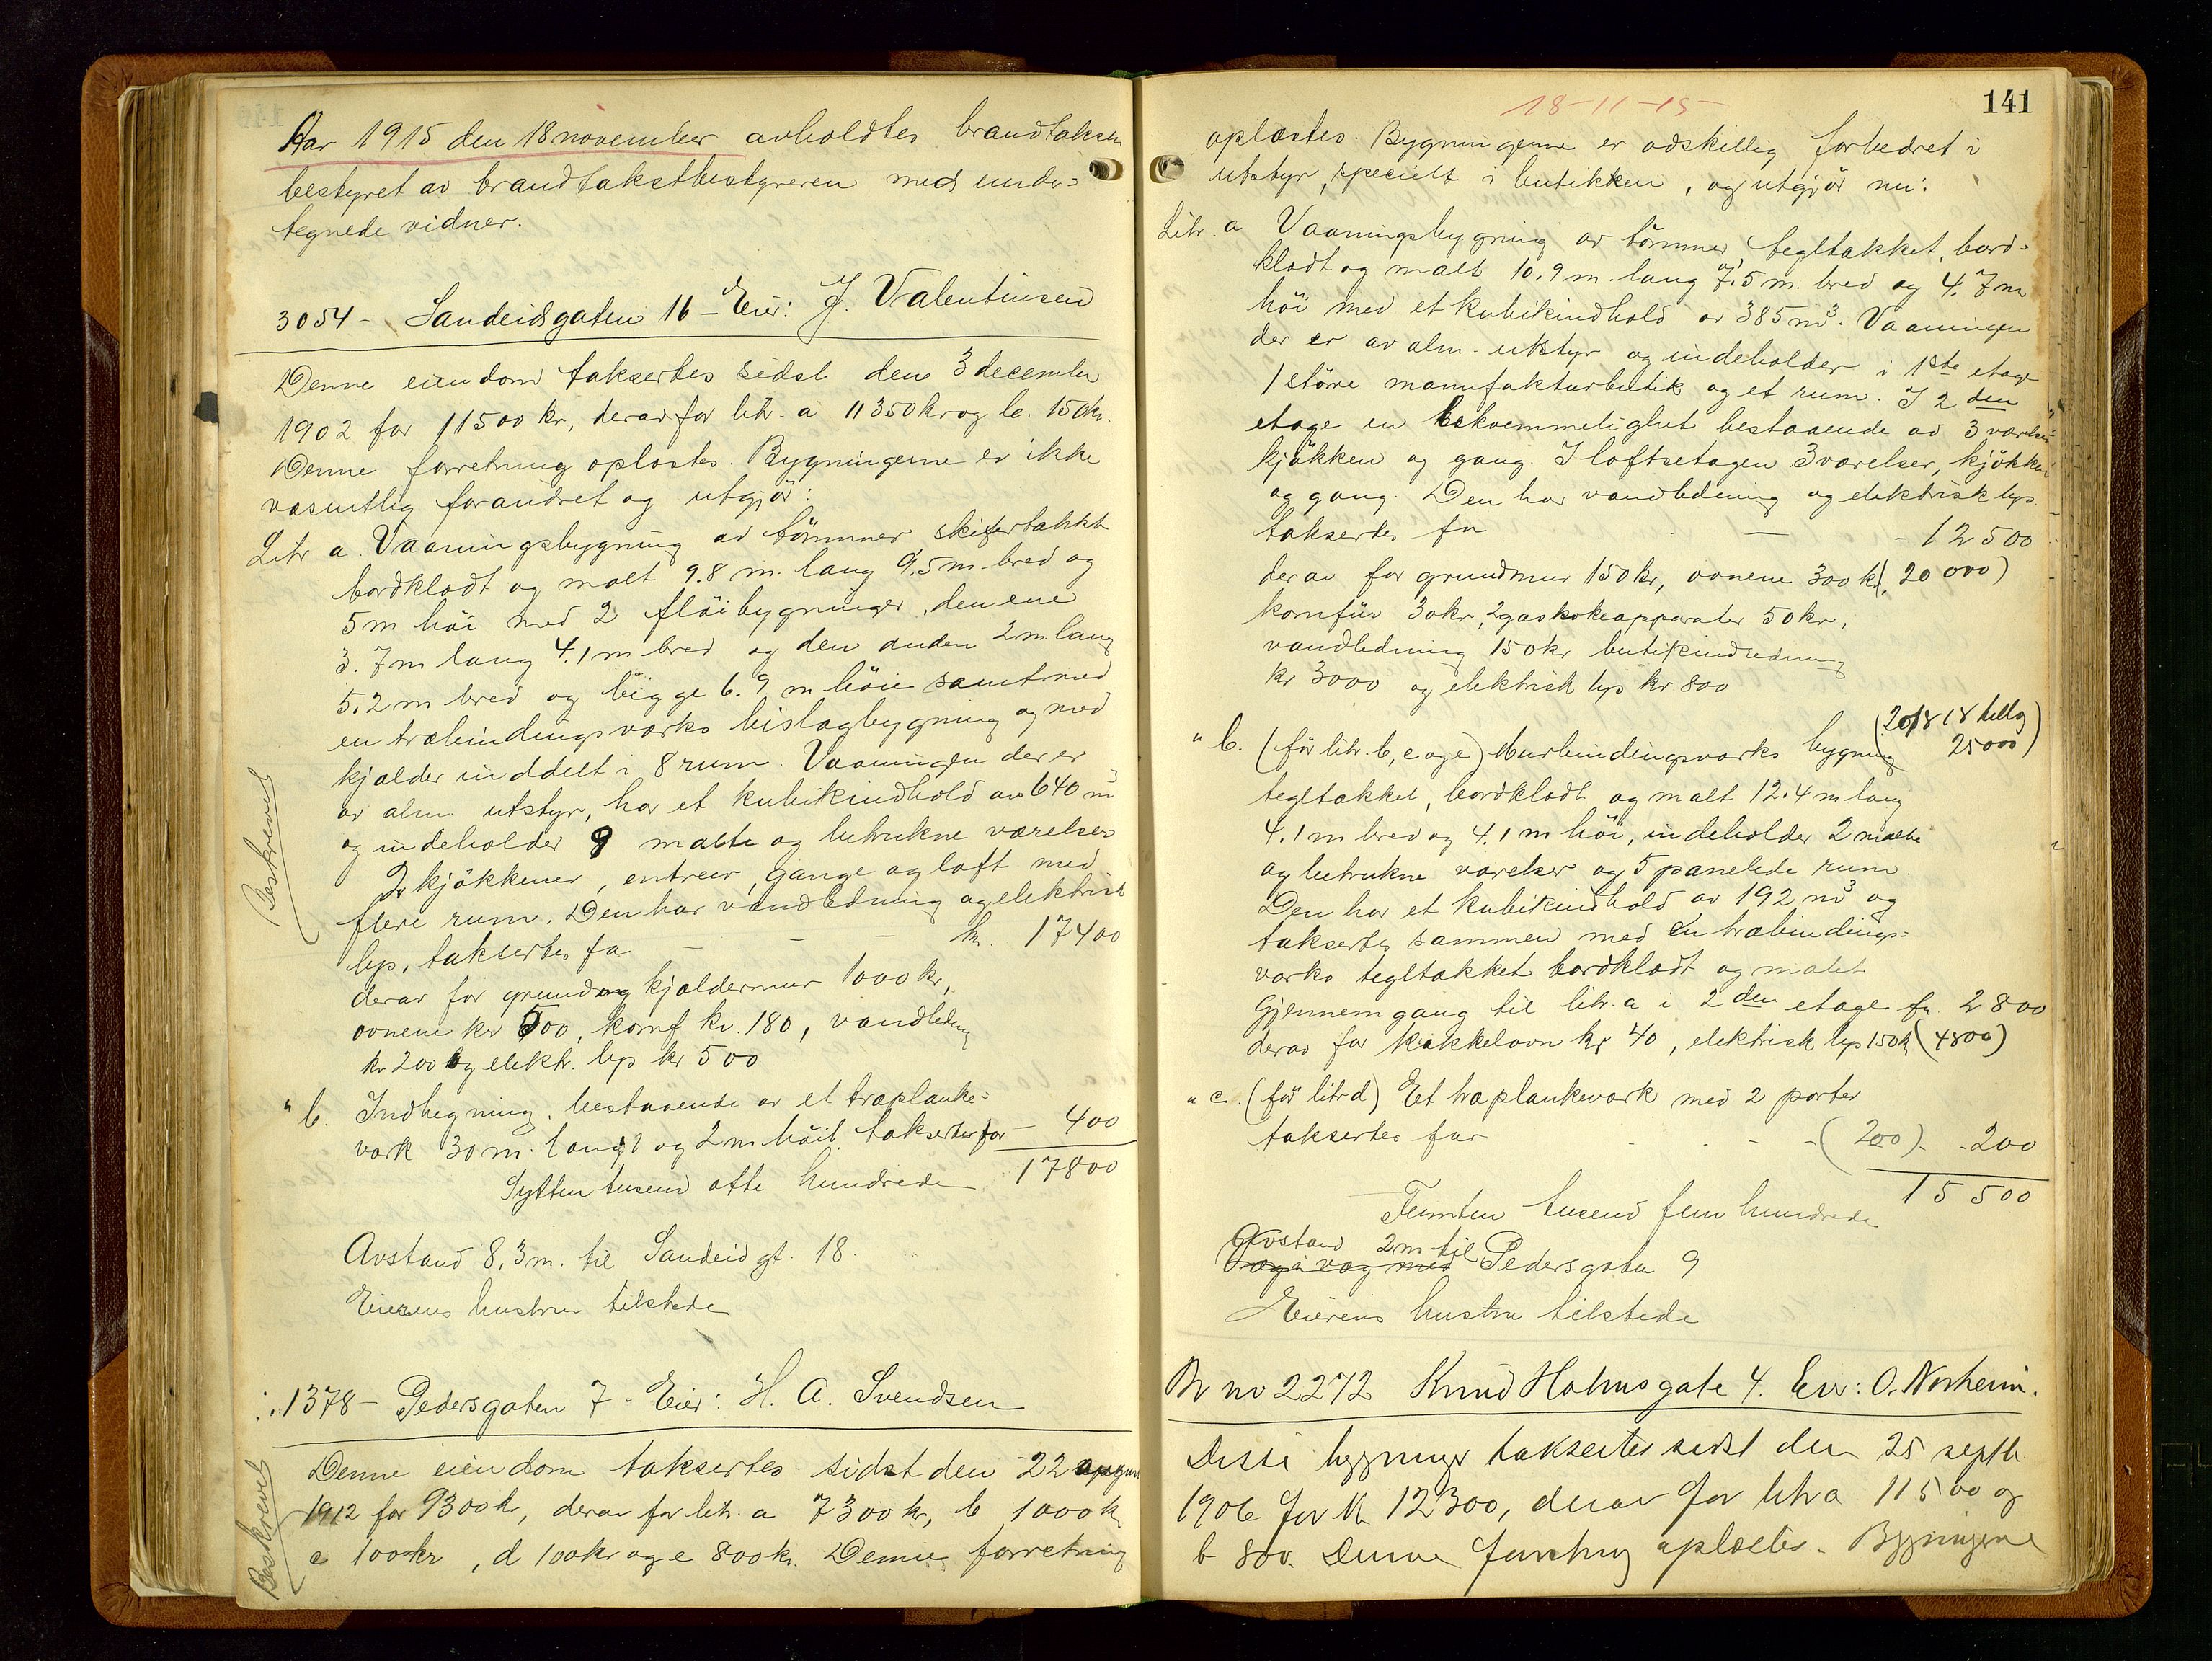 Aar 1915 den 18 november avholdtes brandtakster
bestyret av brandtakstbestyreren med under=
tegnede vidner.
3054 - Sandeidsgaten 16 - Eier: J. Valentinsen
Denne eiendom taksertes sidst den 3 december
1902 for 11500 kr, derav for litr. a 11350 kr og b. 150 kr.
Denne forretning oplæstes. Bygningerne er ikke
væsentlig forandret og utgjør:
Litr a. Vaaningsbygning av tömmer skifertækket
bordklædt og malt 9.8 m. lang 9.5 m. bred og
5 m höi med 2 flöibygninger, den ene
3.7 m lang 4.1 m bred og den anden 2 m lang
5.2 m bred og begge 6.9 m höie samt med
en træbindingsverks bislagbygning og med
kjælder inddelt i 8 rum. Vaaningen der er
av alm. utstyr, har et kubikindhold av 640 m³
og indeholder 9 malte og betrukne værelser
2 kjökkener, entreer, gange og loft med
flere rum. Den har vandledning og elektrisk
lys, taksertes for - - - kr. 17400
derav for grund og kjældermur 1000 kr,
ovnene kr 500, komf kr. 180, vandledning
kr 200 og elektr. lys kr 500
" b. Indhegning, bestaaende av et træplanke=
værk 30 m. langt og 2 m höit taksertes for - 400
17800
Sytten tusend otte hundrede
Avstand 8,3 m. til Sandeidgt. 18.
Eierens hustru tilstede
Beskrevet
1378 - Pedersgaten 7 - Eier: H. A. Svendsen
Denne eiendom taksertes sidst den 22
1912 for 9300 kr, derav for litr. a 7300 kr, b 1000 kr
c 100 kr, d 100 kr og e 800 kr. Denne forretning
Beskrevet
18-11-15
141
oplæstes. Bygningerne er adskillig forbedret i
utstyr, specielt i butikken, og utgjör nu:
Litr. a Vaaningsbygning av tömmer tegltækket, bord=
klædt og malt 10.9 m. lang 7.5 m. bred og 4.7 m
höi med et kubikindhold av 385 m³. Vaaningen
der er av alm. utstyr og indeholder i 1ste etage
1 större manufakturbutik og et rum. I 2den
etage en bekvemmelighet bestaaende av 3 værelser
kjökken og gang. I loftsetagen 3 værelser, kjökken
og gang. Den har vandledning og elektrisk lys.
taksertes for - - 12500
derav for grundmur 150 kr, ovnene 300 kr, (20000)
komfür 30 kr, 2 gaskokeapparater 50 kr,
vandledning 150 kr butikindredning
kr 3000 og elektrisk lys kr 800
(20/8 18 tillæg
25000)
" b. (för litr. b, c og e) Murbindingsværks bygning
tegltækket, bordklædt og malt 12.4 m lang
4.1 m bred og 4.1 m höi, indeholder 2 malte
og betrukne værelser og 5 panelede rum.
Den har et kubikindhold av 192 m³ og
taksertes sammen med en træbindings=
værks tegltækket bordklædt og malet
gjennemgang til litr. a i 2den etage for 2800
derav for kakkelovn kr 40, elektrisk lys 150 kr (4800)
" c. (för litr d) Et træplankeværk med 2 porter
taksertes for - - - (200) - 200
15500
Femten tusend fem hundrede
Avstand 2 m til
Væg i væg med Pedersgaten 9
Eierens hustru tilstede
Br no 2272 Knud Holmsgate 4. Eier: O. Norheim.
Disse bygninger taksertes sidst den 25 septb.
1906 for kr 12300, derav for litr a 11500 og
b 800. Denne forretning oplæstes. Bygningerne